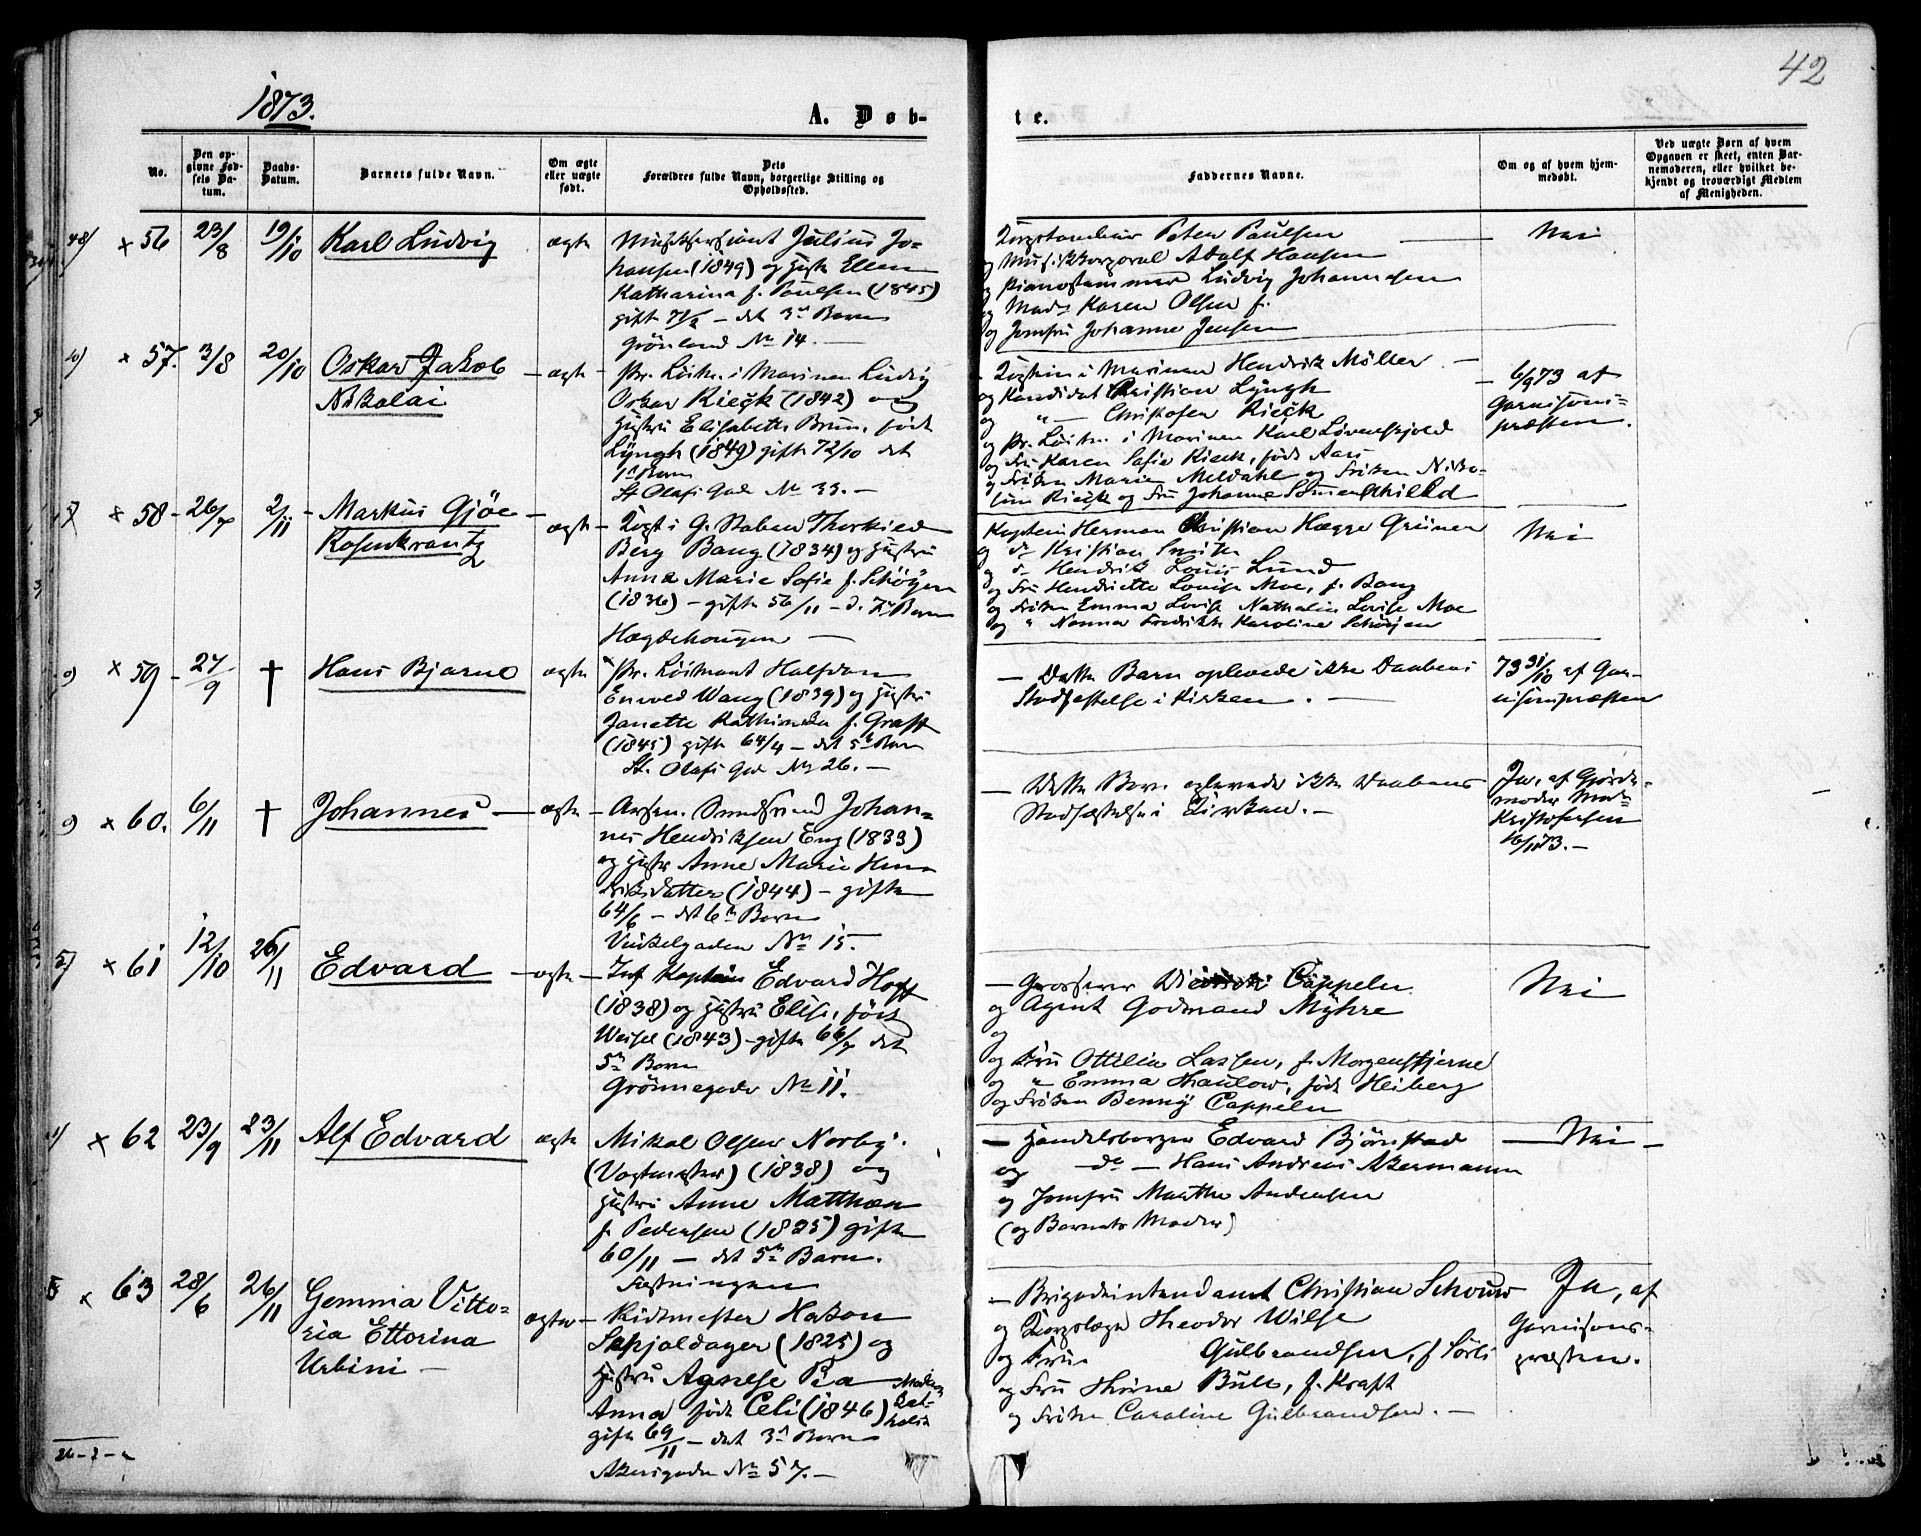 42
1873.
A. Døb-
te.
No.
Den op-
givne Fød-
sels Da-
tum.
Daabs-
Datum.
Barnets fulde Navn.
Om ægte
eller uægte
født.
Dets
Forældres fulde Navn, borgerlige Stilling og
Opholdssted.
Faddernes Navne.
Om og af hvem hjem-
medøbt.
Ved uægte Børn af hvem
Opgaven er skeet, enten Bar-
nemoderen, eller hvilket be-
kjendt og troværdigt Medlem
af Menigheden.
x 56 23/8 19/10 Karl Ludvig ægte
Julius Jo-
hansen (1849) og Hustr Ellen
Katharina f. Paulsen (1845)
gift 71/2 – det 3die Barn
Grönland No 14. –
Korpstambur Peter Paulsen
og Musikkorporal Adolf Hansen
og Ludvig Johannesen
og Mad. Karen Olsen f.
og Jomfru Johanne Jensen
Nei
x 57. 3/8 20/10 Oskar Jakob
Nikolai
– ægte – Pr. Löitn. i Marinen Ludvig
Oskar Rieck (1842) og
Hustru Elisabeth Brun, født
Lyngh (1849) gift 72/10 det
1ste Barn
St Olafs Gad No 33. –
i Marinen Hendrik Möller –
og Kandidat Christian Lyngh
og " – Christofer Rieck
og Pr. Löitn. i Marinen Karl Lövenskjold
og Fru Karen Sofie Rieck, født Aars
og Fröken Marie Meldahl og Fröken Niko-
line Rieck og Fru Johanne
– 6/9 73 af
Garnisons=
præsten.
x 58 – 26/7 2/11 – Markus Gjöe –
Rosenkrantz
ægte – Kapt. i G. Staben Thorkild
Berg Bang (1834) og Hustru
Anna Marie Sofie f. Schöyen
(1836) – gifte 56/11 – d. 7de Barn
Hægdehougen –
Kaptein Herman Christian Hagge Grüner
og do Kristian Smith
og do Hendrik Louis Lund
og Fru Henriette Louise Moe, f. Bang
og Fröken Emma Lovise Nathalie Lovise Moe
og " Nanna Fredrikke Karoline Schöyen
Nei
x 59 – 27/9 † Hans Bjarne ægte
Pr. Löitnant Halfdan
Enevold Wang (1839) og Hustru
Janette Kathinka f. Grafft
(1845) gift 64/4 – det 5te Barn
St. Olafs Gd No 26. –
– Dette Barn oplevede ikke Daabens
Stadfæstelse i Kirken. –
73 31/10 af Gar-
nisonspræsten
x 60. 6/11 † Johannes – ægte –
Johan-
nes Hendriksen Eng (1833)
og Hustr Anne Marie Hen-
driksdatter (1844) – gifte
64/6 – det 6te Barn
Vinkelgaden No 15.
– Dette Barn oplevede ikke Daabens
Stadfæstelse i Kirken. –
Ja, af Gjorde-
moder Mad=
Kristofersen
6/11 73. –
x 61 12/10 26/11 Edvard – ægte –
Inf Kaptein Edvard Hoff
(1838) og Hustru Elise, født
Weisel (1843) – gifte 66/7 det
5te Barn
Grönnegade No 11.
– Grosserer Cappelen
og Agent Godmand Myhre
og
og Fru Ottilia Lassen, f. Morgenstjerne
og " Emma Thaulow, født Heiberg
og Fröken Benny Cappelen
Nei
x 62 23/9 23/11 Alf Edvard ægte
Mikal Olsen Norby.
(Vagtmester) (1838) og
Hustru Anne Matthea
f. Pedersen (1825) gift
60/11 – det 5te Barn.
Festningen
– Handelsborger Edvard Björnstad
og – do – Hans Andreas Akermann
og Jomfru Marthe Andersen
(og Barnets Moder)
– Nei –
x 63 28/6 26/11 Gemma Vitto-
ria Ettorina
Urbini –
ægte – Ridtmester Hakon
Skjoldager (1825) og
Hustru Agnese Pia
Anna født Celi (1846)
Moderen
Kat-
holik
gift 69/11 – det 3die Barn
Akersgaden No 57. –
– Brigadeintendant Christian Schouw
og Korpslæge Theodor Wilse
og Fru Gulbrandsen, f Sörli
og Fru Thrine Bull, f. Kraft
og Fröken Caroline Gulbrandsen. –
Ja, af
Garnisons-
præsten.